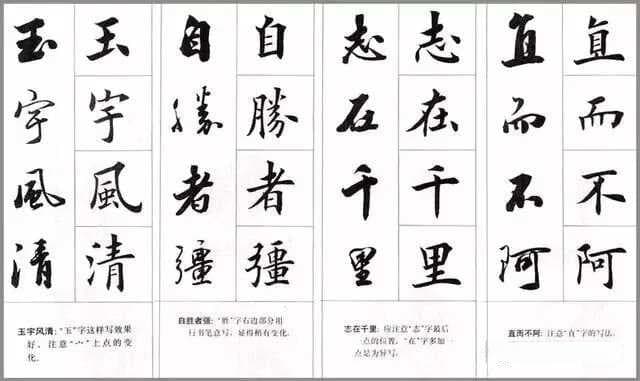 玉宇風清
玉宇風清
玉宇风清:“玉”字这样写效果
好。注意“宀”上点的变
化。
自勝者彊
自勝者彊
自胜者强:“胜”字右边部分用
行书笔意写,显得稍有变化。
志在千里
志在千里
志在千里:应注意“志”字最后
一点的位置,“在”字多加一
点是为异写。
直而不阿
直而不阿
直而不阿:注意“直”字的写法。